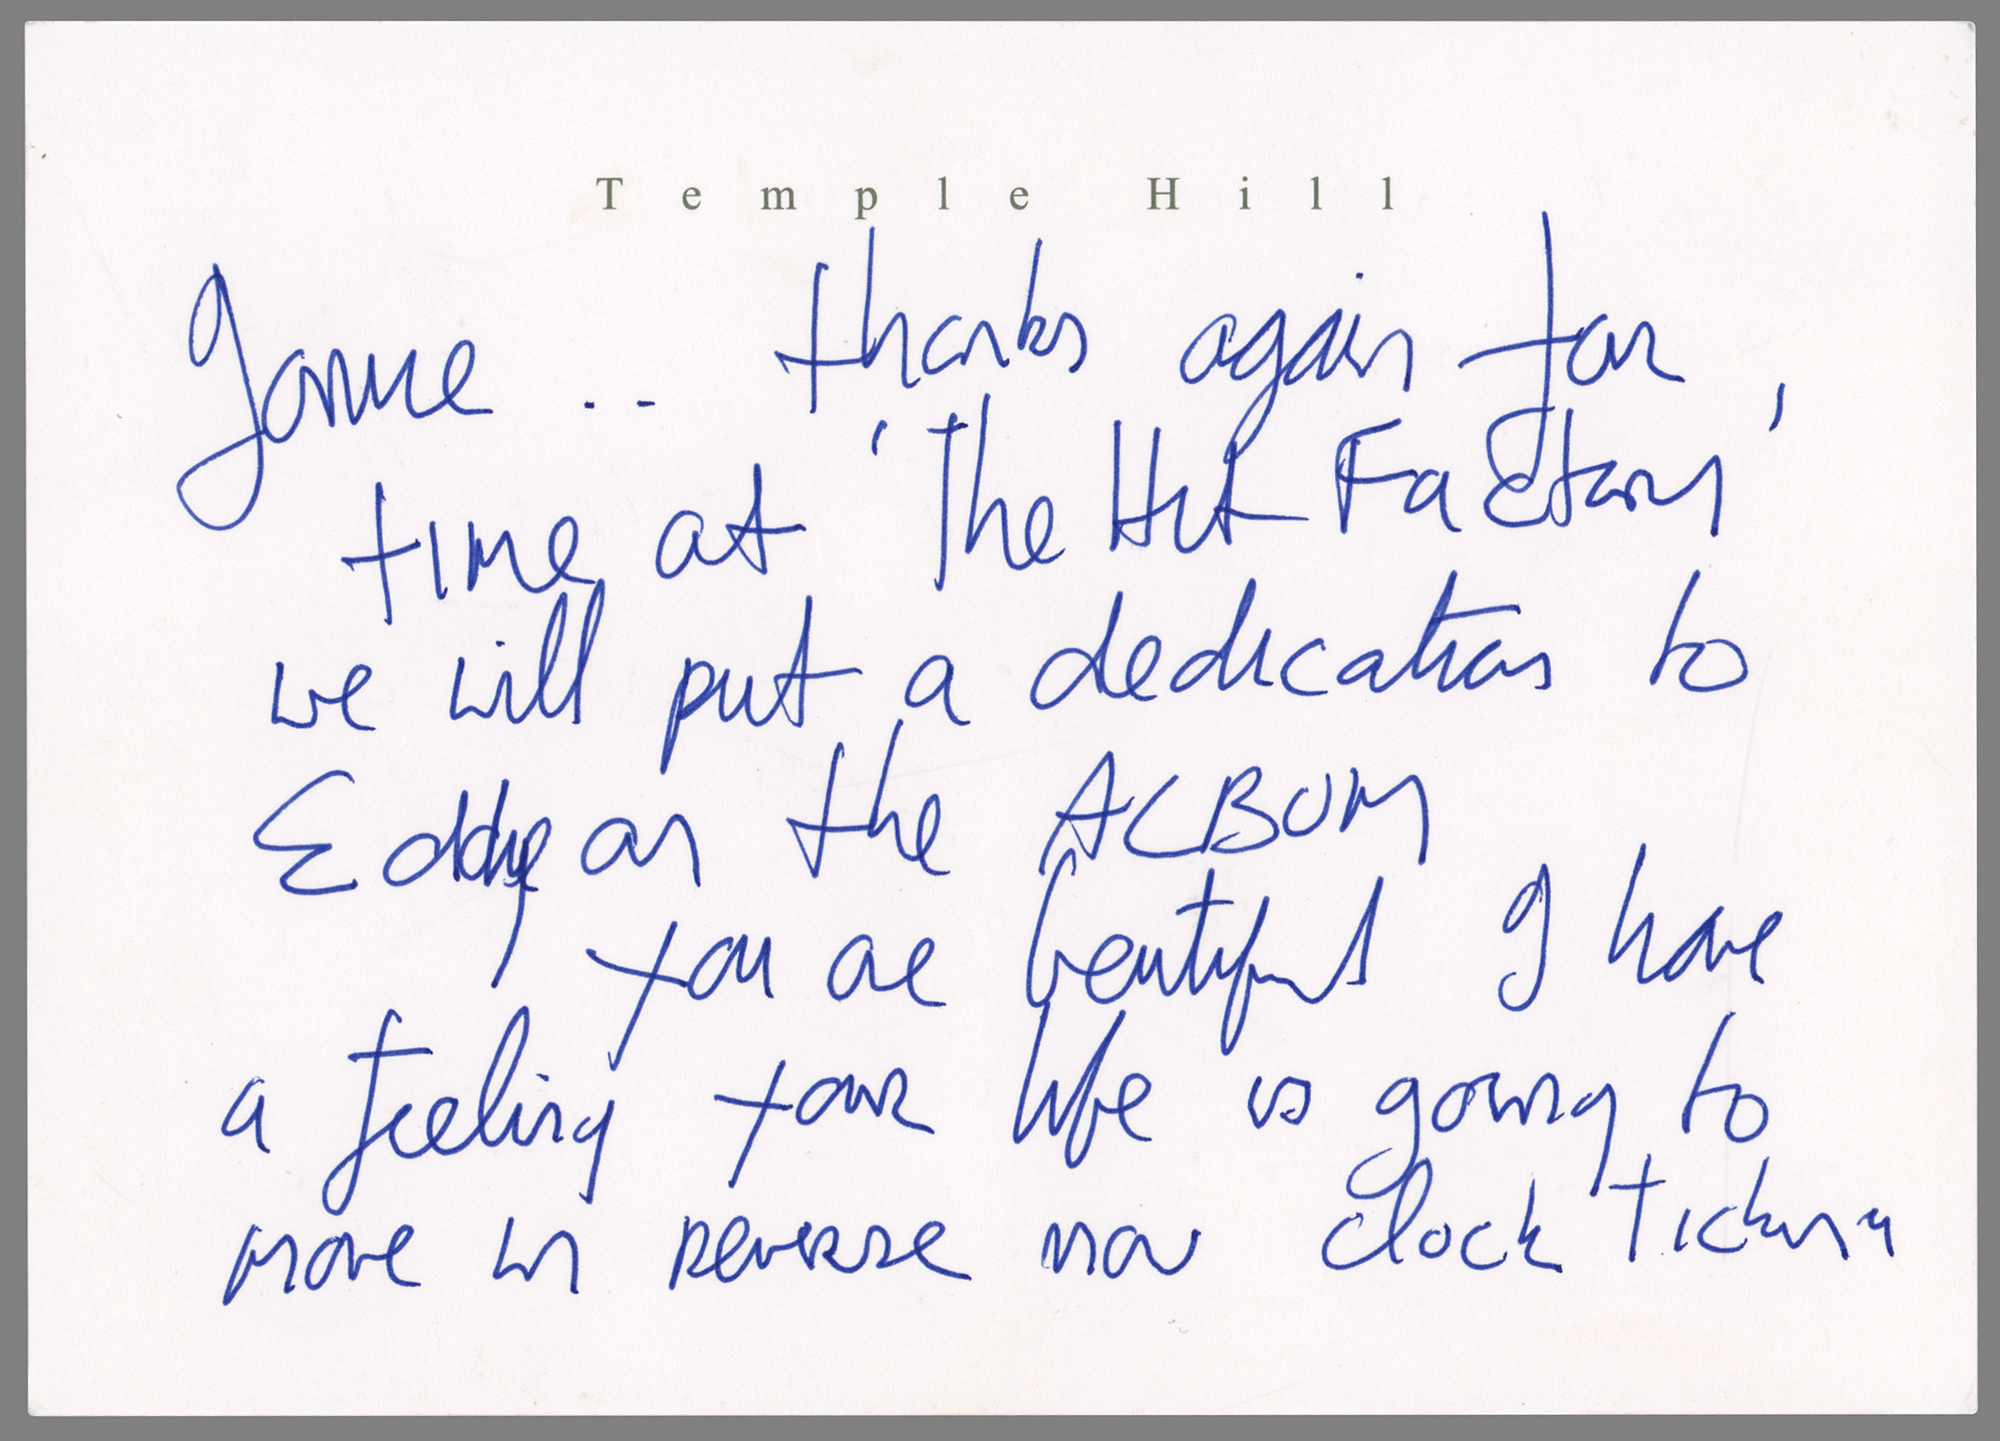 Temple Hill
Janice .. thanks again for
time at 'The Hit Factory'
we will put a dedication to
Eddy on the ALBUM
You are beautiful I have
a feeling your life is going to
move in reverse now clock ticking